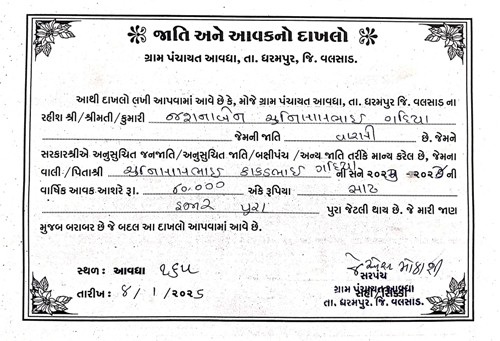 જાતિ અને આવકનો દાખલો
ગ્રામ પંચાયત આવધા, તા. ધરમપુર, જિ. વલસાડ.
આથી દાખલો લખી આપવામાં આવે છે કે, મોજે ગ્રામ પંચાયત આવધા, તા. ધરમપુર જિ. વલસાડ ના
રહીશ શ્રી/શ્રીમતી/કુમારી
જેમની જાતિ વારલી છે. જેમને
સરકારશ્રીએ અનુસુચિત જનજાતિ/અનુસુચિત જાતિ/બક્ષીપંચ /અન્ય જાતિ તરીકે માન્ય કરેલ છે, જેમના
વાલી/પિતાશ્રી ની સને ની
વાર્ષિક આવક આશરે રૂા. ૬૦,૦૦૦ અંકે રૂપિયા સાઠ
હજાર પુરા પુરા જેટલી થાય છે. જે મારી જાણ
મુજબ બરાબર છે જે બદલ આ દાખલો આપવામાં આવે છે.
સ્થળ : આવધા
તારીખ : ૮/૧/૨૦૨૬
સરપંચ
ગ્રામ પંચાયત આવધા
તા. ધરમપુર, જિ. વલસાડ.